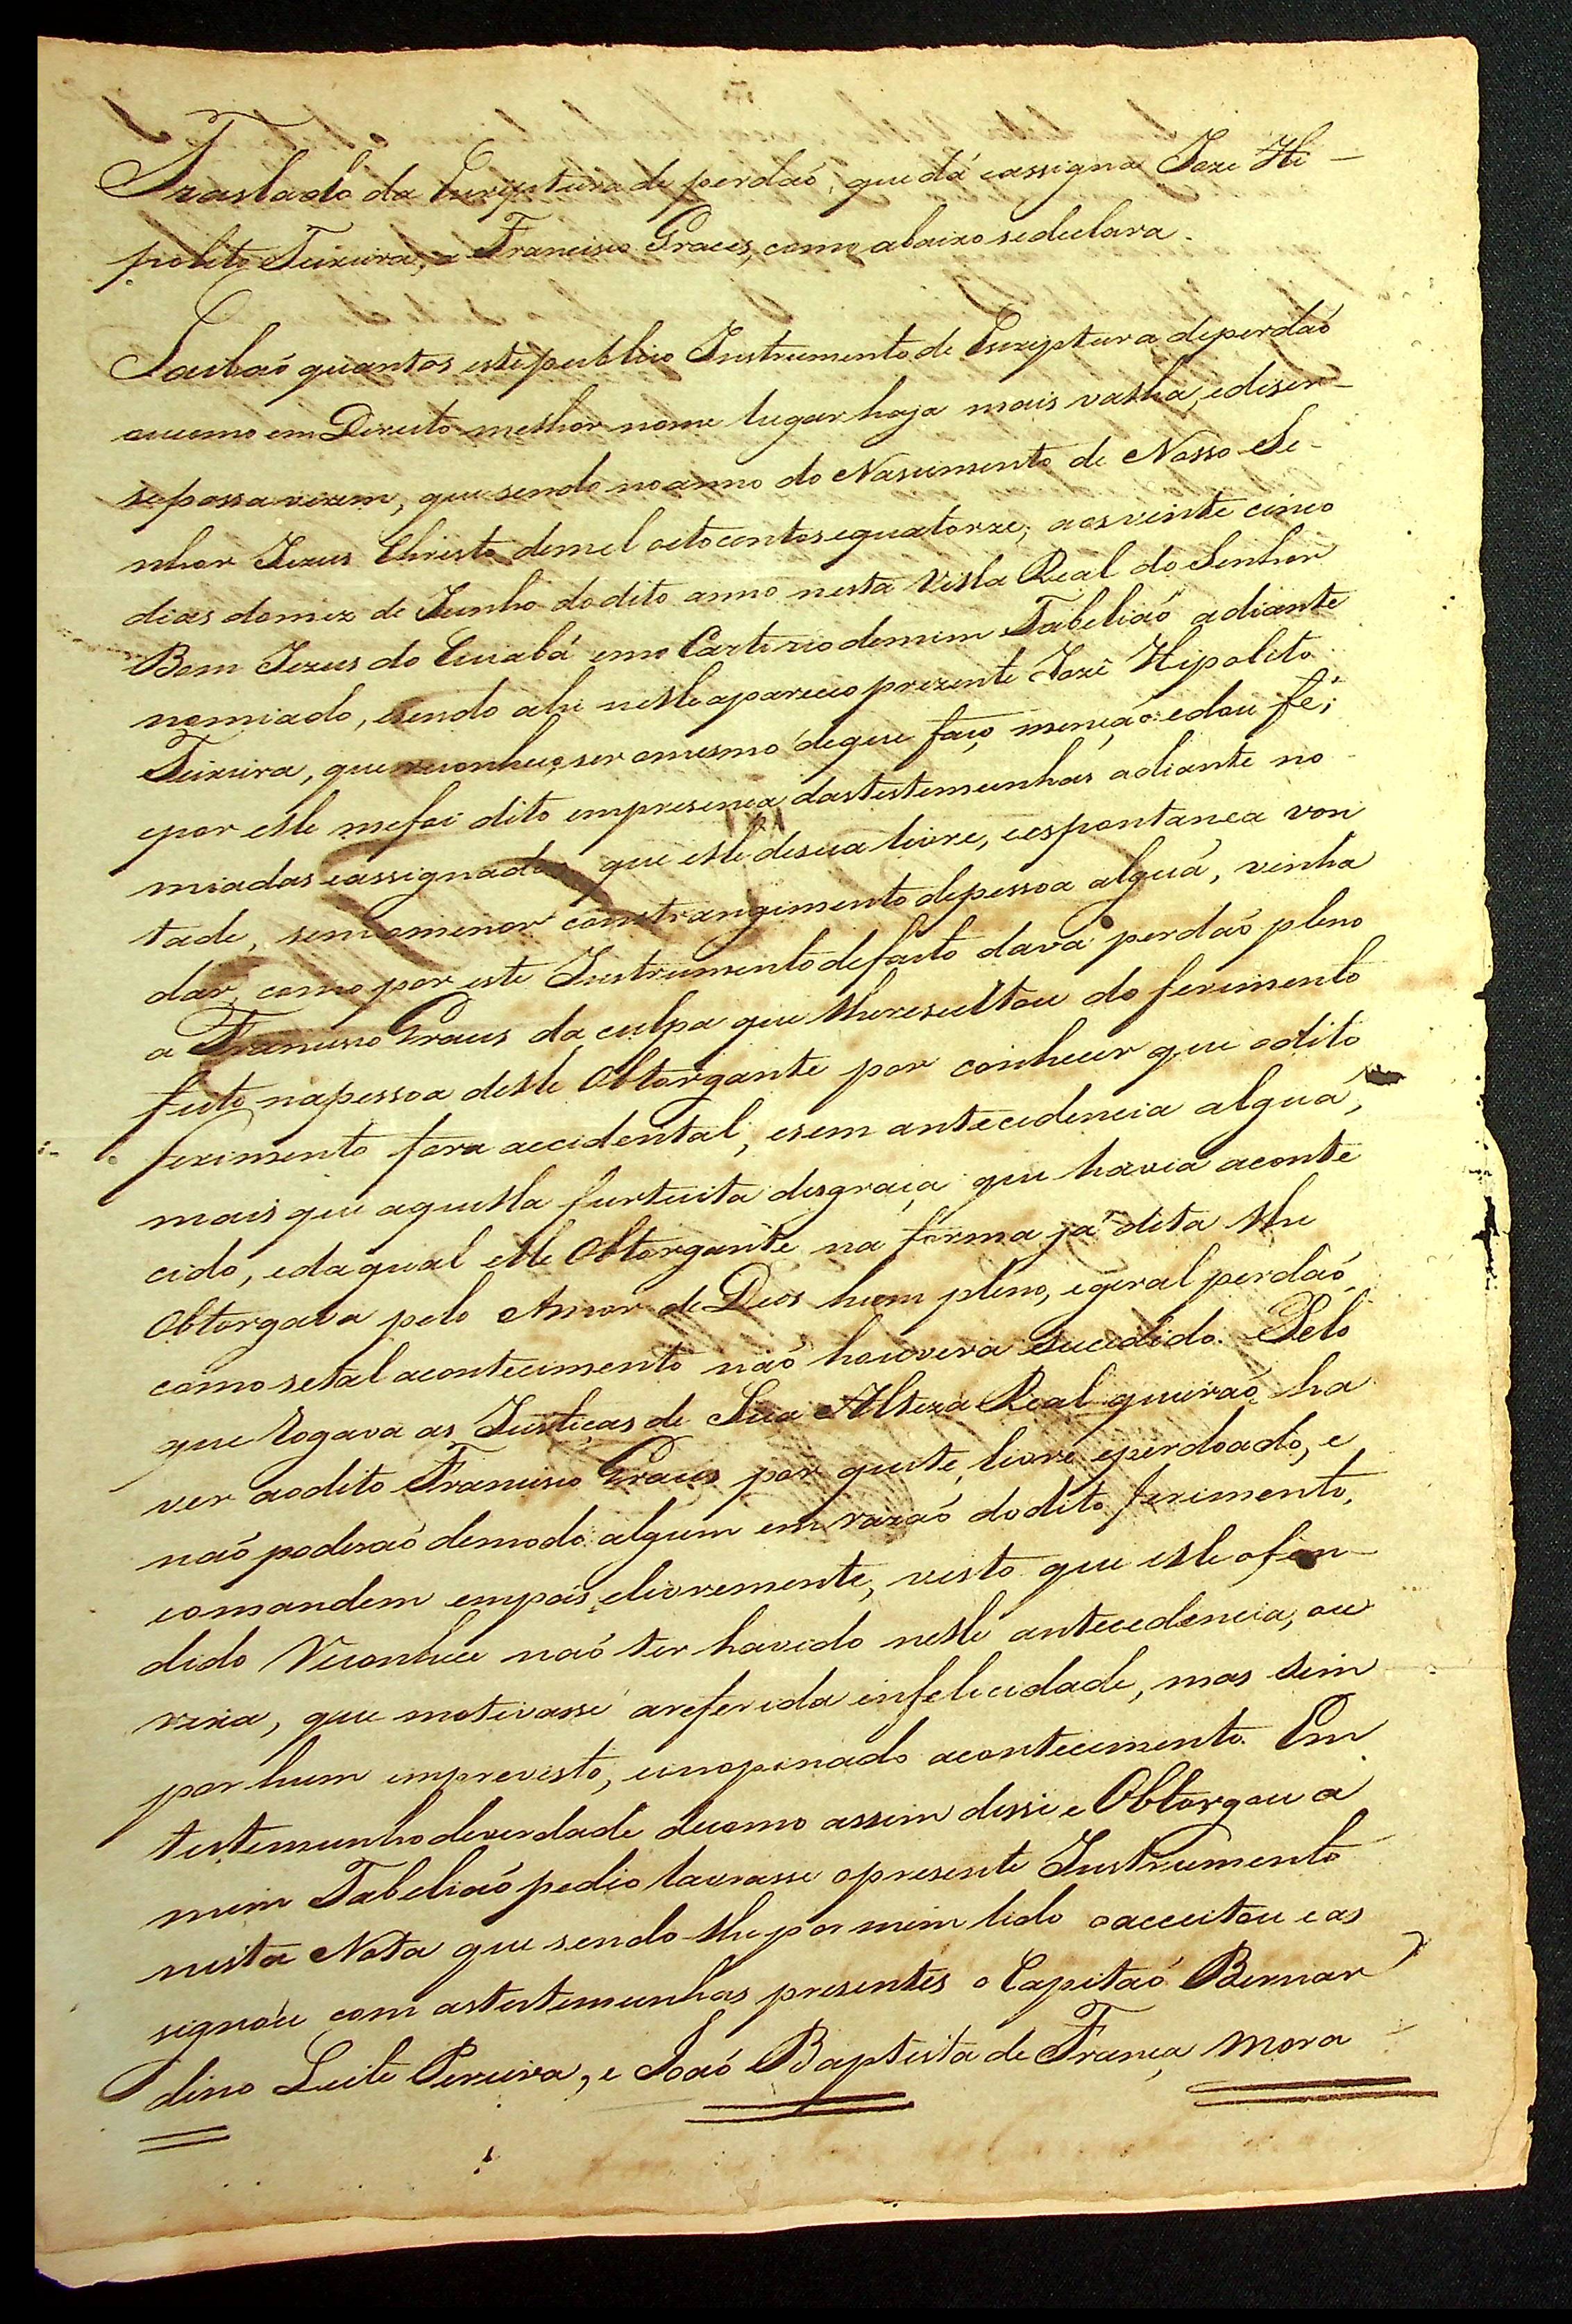 Traslado da Escriptura de perdaõ, que dá eassigna Joze Hi-
polito Teixeira, a Francisco Graces, como abaixo sedeclara.
Saibaõ quantos este publico Instrumento de Escriptura deperdaõ
oucomo em Direito melhor nome lugar haja mais valha, edizer-
sepossa virem, que sendo noanno do Nascimento de Nosso Se-
nhor Jezus Christo demil oitocentos equatorze, aos vinte cinco
dias domez de Junho dodito anno nesta Villa Real do Senhor
Bom Jezus do Cuiabá emo Cartorio demim Tabeliaõ adiante
nomiado, esendo ahi nelle apareceo prezente Jozé Hipolito
Teixeira, que reconheço ser omesmo deque faço mençaõ edou fé;
epor elle mefoi dito empresença dastestemunhas adiante no-
miadas eassignadas que elle desua livre, eespontanea von
tade, sem omenor constrangimento depessoa alguã, vinha
dar, como por este Instrumento defacto dava perdaõ pleno
a Francisco Graces da culpa que lheresultou do ferimento
feito napessoa delle Obtorgante por conhecer que odito
ferimento fora accidental, esem antecedencia alguã,
mais que aquella furtuita disgraça que havia aconte
cido, edaqual elle Obtorgante na forma já dita lhe
Obtorgava pelo Amor de Deos hum pleno, egeral perdaõ
como setal acontecimento naõ houvera sucedido. Pelo
que Rogava as Justiças de Sua Alteza Real queiraõ ha
ver aodito Francisco Graces por quite, livre eperdoado, e
naõ poderaõ demodo algum em razaõ dodito ferimento,
comandem empás, elivremente, visto que elle ofen-
dido Reconhece naõ ter havido nelle antecedencia, ou
rixa, que motivasse areferida infelicidade, mas sim
por hum imprevisto, einopinado acontecimento. Em
testemunho deverdade decomo assim disse e Obtorgou a
mim Tabeliaõ pedio lavrasse opresente Instrumento
nesta Nota que sendo-lhe por mim lido oacceitou eas
signou com astestemunhas presentes o Capitaõ Bernar
dino Leite Pereira, e Joaõ Baptista de França mora